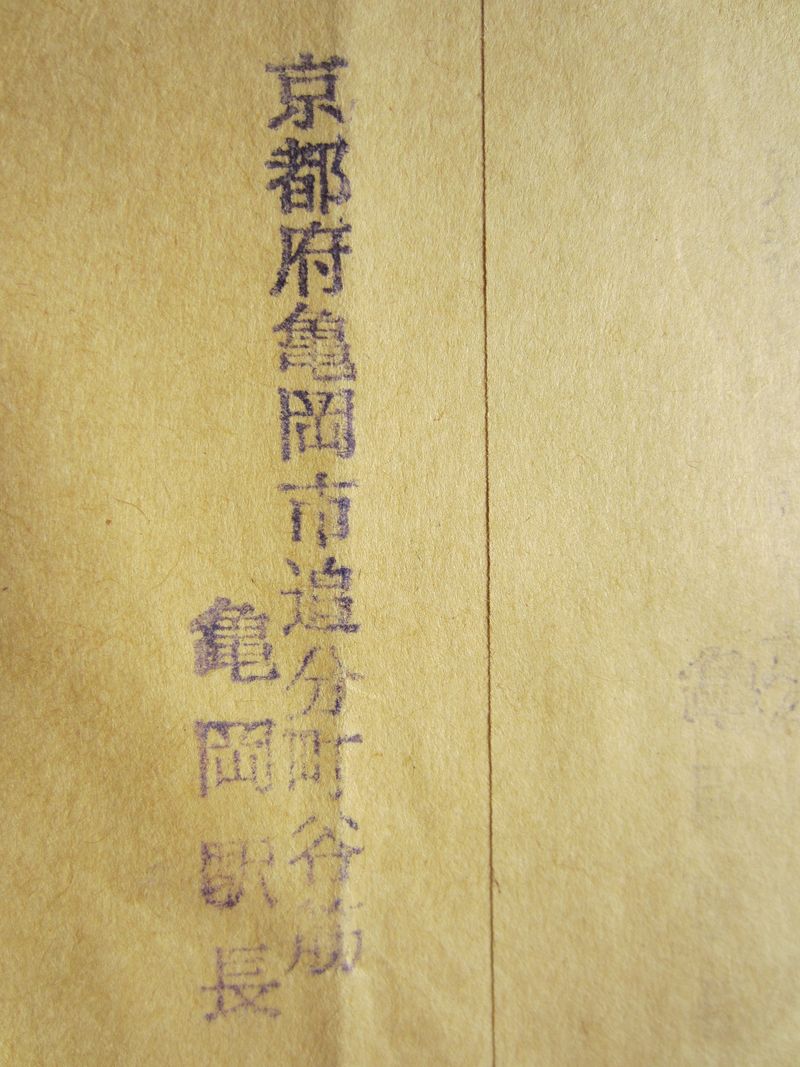 京都府亀岡市追分町谷筋
亀岡駅長